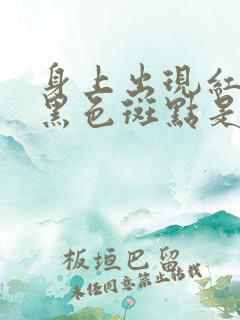 身上出現紅
黑色斑點是
板垣巴留
未任同意禁止轉載